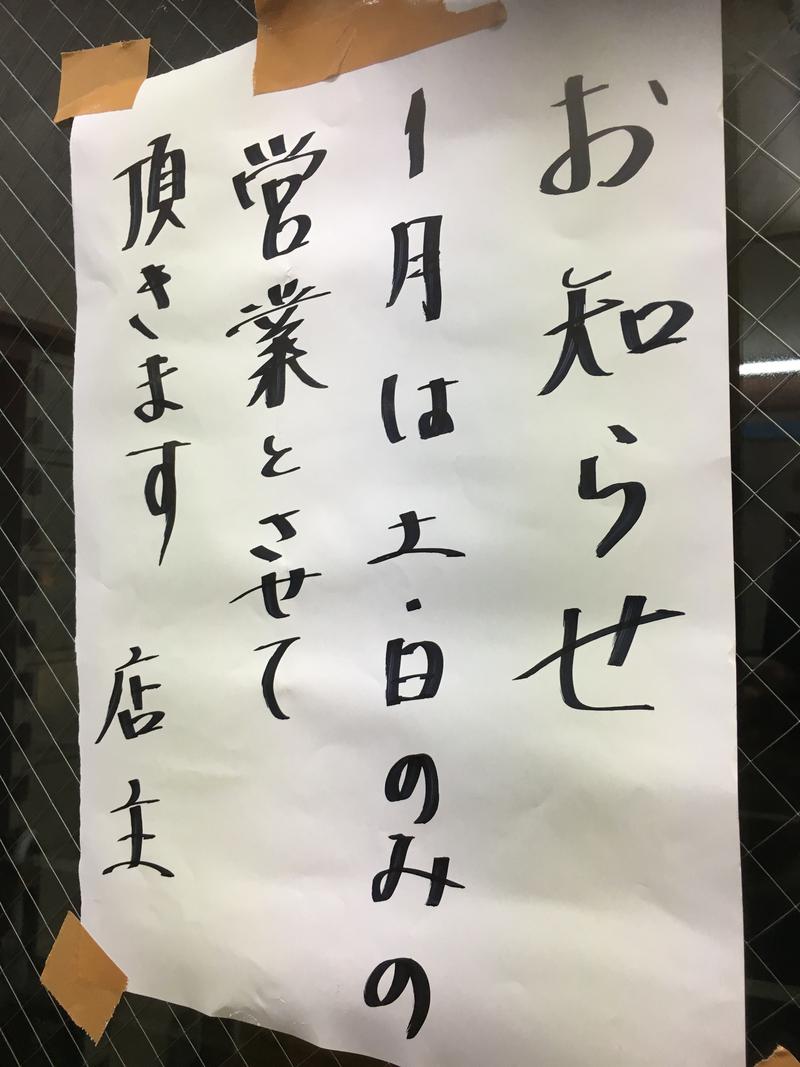 お知らせ
1月は土・日のみの
営業とさせて
頂きます 店主